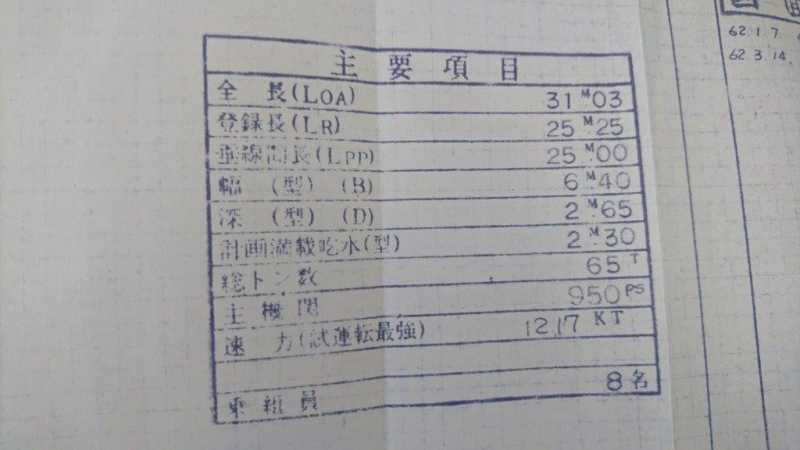 主要項目
全長(LOA) 31M.03
登録長(LR) 25M.25
垂線間長(LPP) 25M.00
幅(型)(B) 6M.40
深(型)(D) 2M.65
計画満載吃水(型) 2M.30
総トン数 65T
主機関 950PS
速力(試運転最強) 12.17KT
乗組員 8名
62.1.7
62.3.14